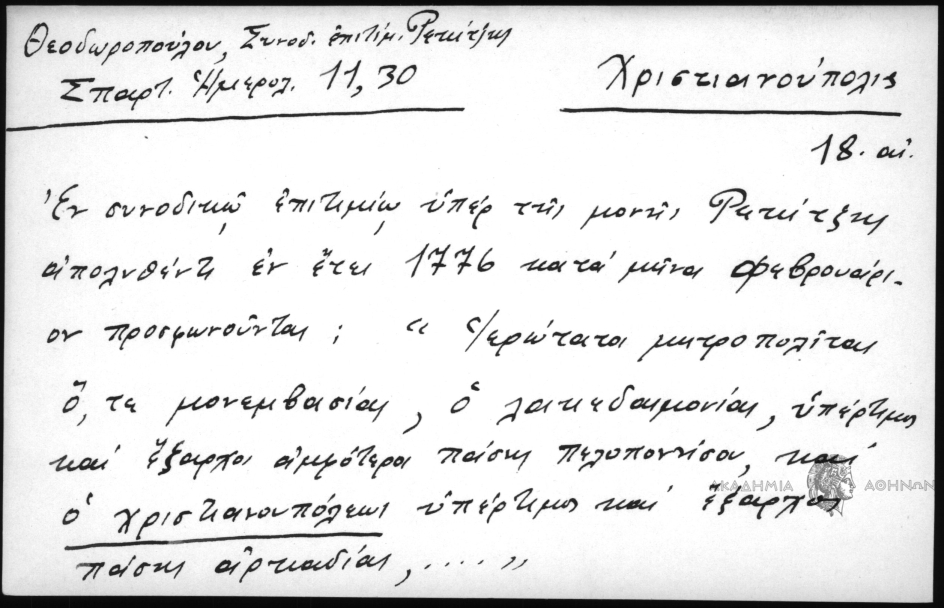 Θεοδωροπούλου, Συνοδ. ἐπιτίμ. Ρεκίτζης
Σπαρτ. Ἡμερολ. 11, 30
Χριστιανούπολις
18. αἰ.
Ἐν συνοδικῷ ἐπιτιμίῳ ὑπέρ τῆς μονῆς Ρεκίτζης
ἀπολυθέντι ἐν ἔτει 1776 κατά μῆνα Φεβρουάρι-
ον προσφωνοῦνται: "Ἱερώτατοι μητροπολῖται
ὅ, τε μονεμβασίας, ὁ λακεδαιμονίας, ὑπέρτιμοι
καί ἔξαρχοι ἀμφότεροι πάσης πελοποννήσου, καί
ὁ χριστιανουπόλεως ὑπέρτιμος καί ἔξαρχος
πάσης ἀρκαδίας, ....."
ΑΚΑΔΗΜΙΑ ΑΘΗΝΩΝ